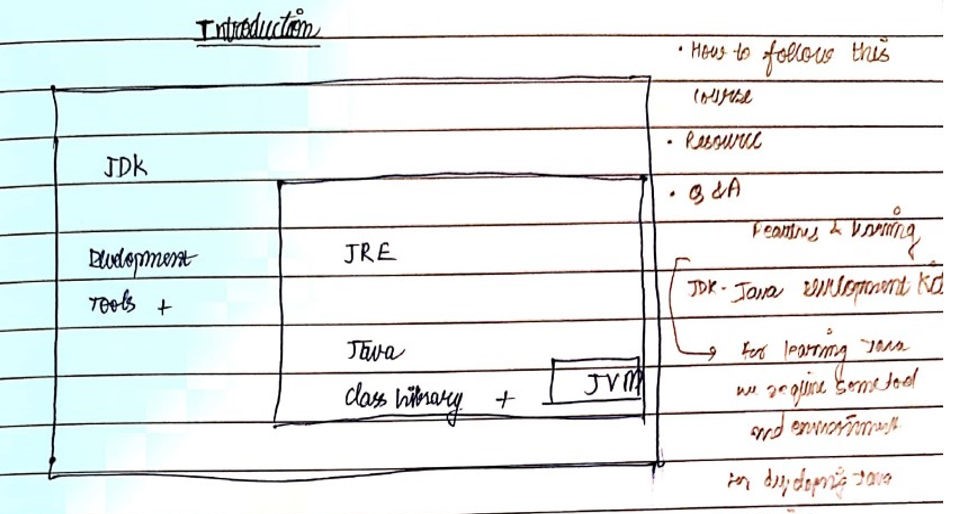 Introduction
JDK
Development
Tools +
JRE
Java
Class library +
JVM
• How to follow this
course
• Resource
• Q & A
Features &
JDK - Java Development Kit
for learning Java
we require some tool
and environment
for developing Java